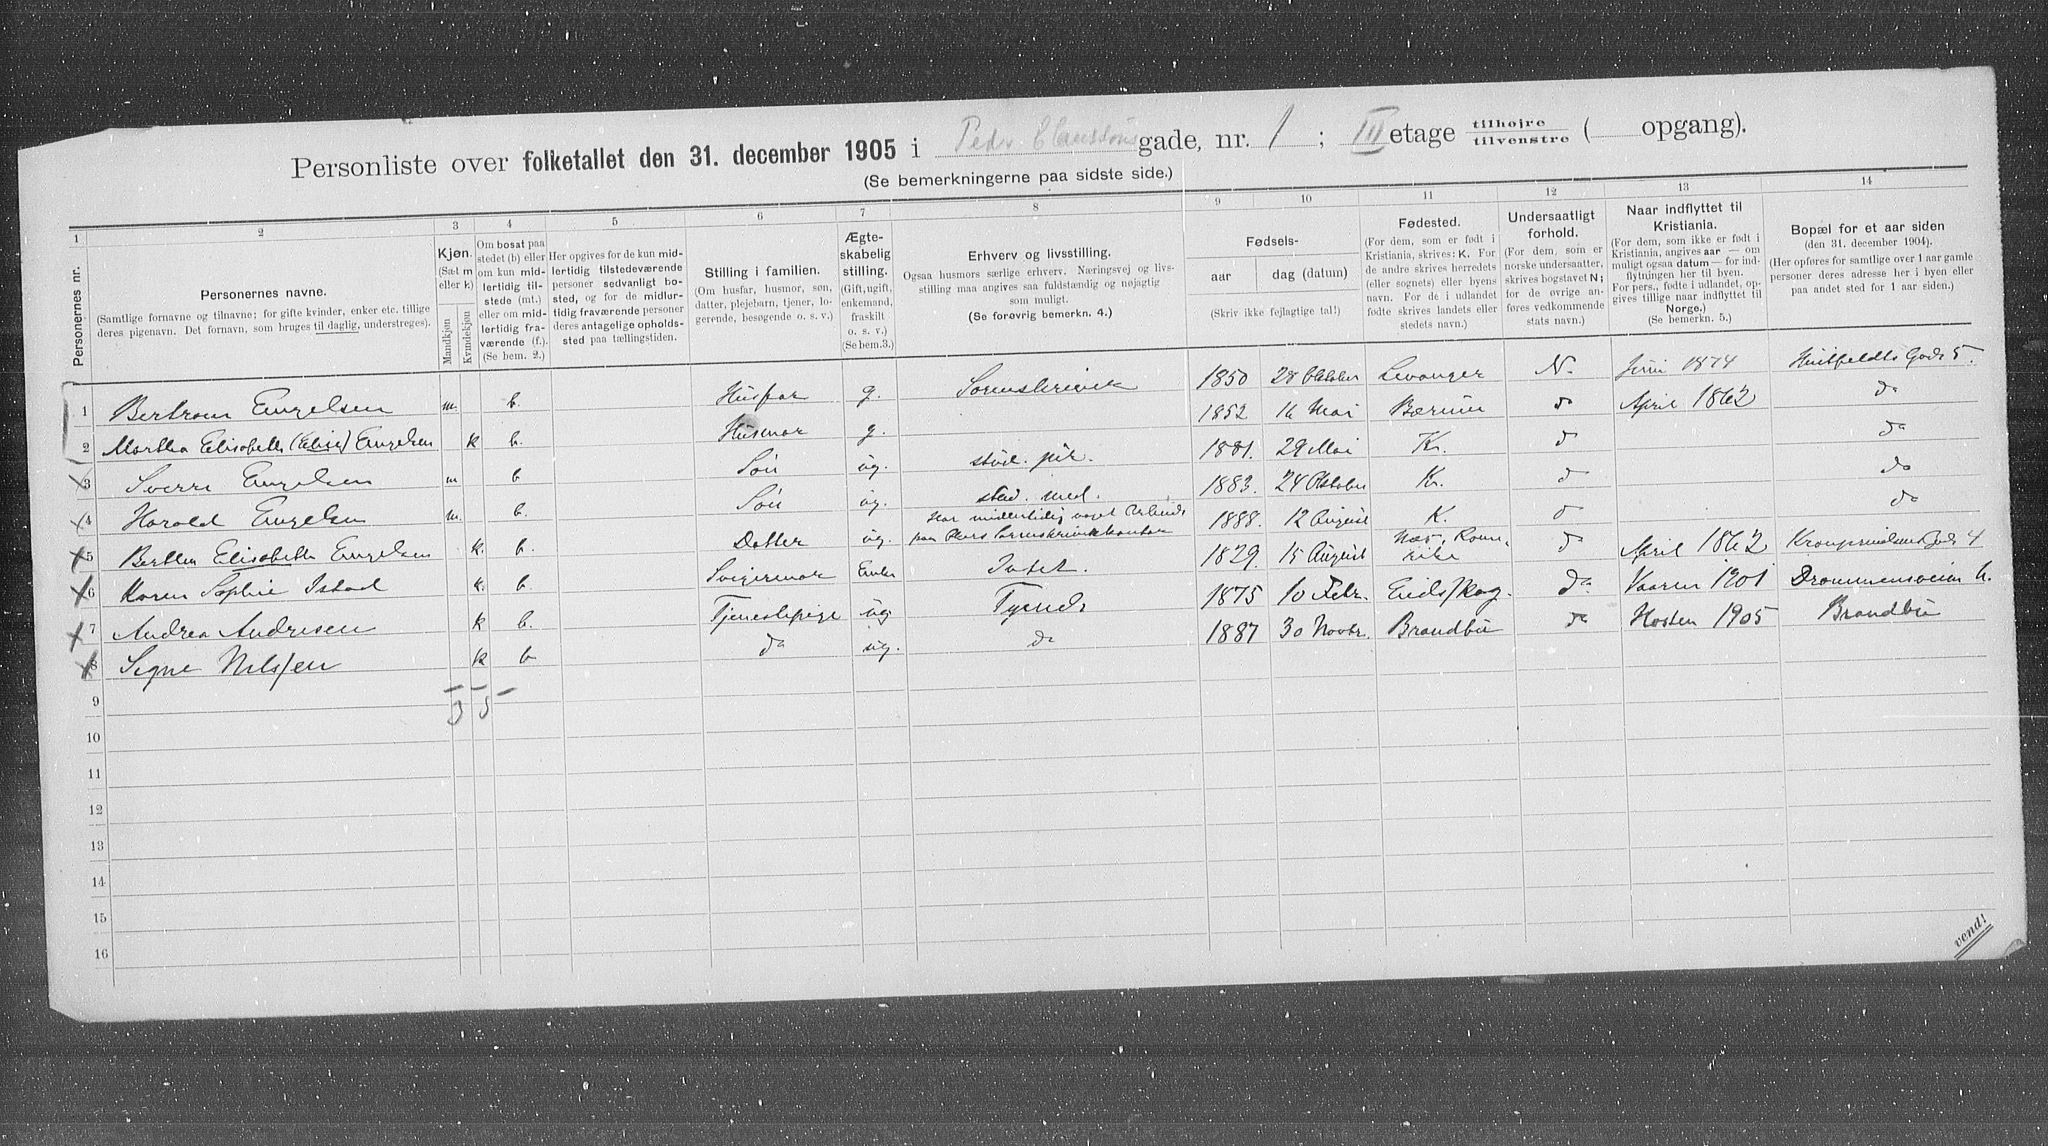 Personliste over folketallet den 31. december 1905 i Peder Claussøns gade, nr. 1 ; III etage tilhøjre tilvenstre ( opgang).
(Se bemerkningerne paa sidste side.)
1 2 3 4 5 6 7 8 9 10 11 12 13 14
Personernes nr.
Personernes navne.
(Samtlige fornavne og tilnavne; for gifte kvinder, enker etc. tillige
deres pigenavn. Det fornavn, som bruges til daglig, understreges).
Kjøn.
(Sæt m
eller k)
Mandkjøn
Kvindekjøn
Om bosat paa
stedet (b) eller
om kun mid-
lertidig til-
stede (mt.)
eller om mid-
lertidig fra-
værende (f.).
(Se bem. 2.)
Her opgives for de kun mid-
lertidig tilstedeværende
personer sedvanligt bo-
sted, og for de midler-
tidig fraværende personer
deres antagelige opholds-
sted paa tællingstiden.
Stilling i familien.
(Om husfar, husmor, søn,
datter, plejebarn, tjener, lo-
gerende, besøgende o. s. v.)
Ægte-
skabelig
stilling.
(Gift, ugift,
enkemand,
fraskilt
o. s. v.)
(Se bem.3.)
Erhverv og livsstilling.
Ogsaa husmors særlige erhverv. Næringsvej og livs-
stilling maa angives saa fuldstændig og nøjagtig
som muligt.
(Se forøvrig bemerkn. 4.)
Fødsels-
aar dag (datum)
(Skriv ikke fejlagtige tal!)
Fødested.
(For dem, som er født i
Kristiania, skrives: K. For
de andre skrives herredets
(eller sognets) eller byens
navn. For de i udlandet
fødte skrives landets eller
stedets navn.)
Undersaatligt
forhold.
(For dem, som er
norske undersaatter,
skrives bogstavet N;
for de øvrige an-
føres vedkommende
stats navn.)
Naar indflyttet til
Kristiania.
(For dem, som ikke er født i
Kristiania, angives aar — om
muligt ogsaa datum — for ind-
flytningen her til byen.
For pers., fødte i udlandet, op-
gives tillige naar indflyttet til
Norge.)
(Se bemerkn. 5.)
Bopæl for et aar siden
(den 31. december 1904).
(Her opføres for samtlige over 1 aar gamle
personer deres adresse her i byen eller
paa andet sted for 1 aar siden.)
1 Bertram Engelsen m. b. Husfar g. Sorenskriver 1850 28 Oktober Levanger N. Juni 1874 Huitfeldts Gade 5.
2 Martha Elisabeth (Elise) Engelsen k b. Husmor g. 1852 16 Mai Bærum d April 1862 do
3 Sverre Engelsen m b Søn ug. stud. phil. 1881. 29 Mai Kr. d do
4 Harald Engelsen m. b. Søn ug. stud. med. 1883. 24 Oktober Kr. d do
5 Berthea Elisabeth Engelsen k. b. Datter ug. har midlertidig været Arbeide
paa Sorenskriverkontor 1888. 12 August K. d do
6 Karen Sophie Istad k. b Svigermor Enke Intet. 1829. 15 August Næs, Rome-
rike d April 1862 Kronprindsens Gade 4
7 Andrea Andresen k b. Tjenestepige ug. Tyende 1875 10 Febr. Eidskog. da Vaaren 1901 Drammensveien
8 Signe Nilssen k b da ug. do 1887 30 Novbr. Brandbu da Høsten 1905 Brandbu
9
3 5
10
11
12
13
14
15
16
vend!